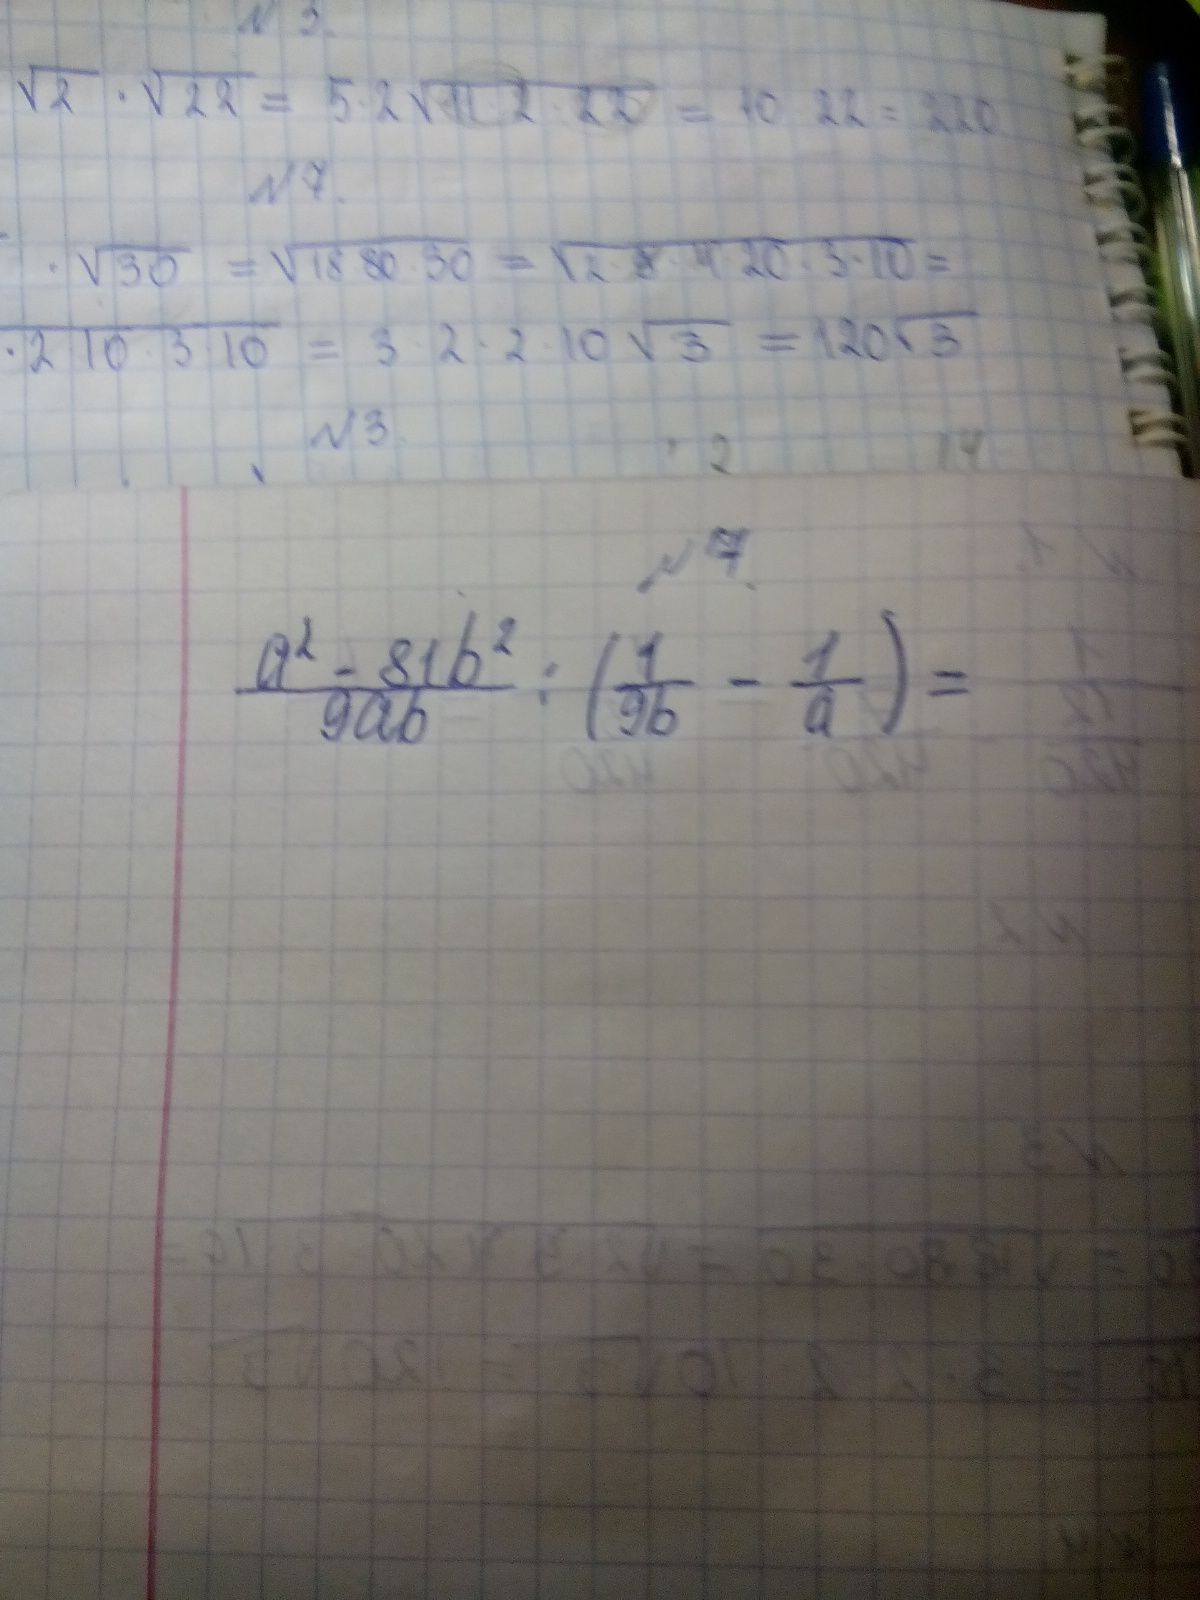 N 3.
√2 · √22 = 5·2√11·2·22 = 10·22 = 220
N 7.
· √30 = √18·80·30 = √2·9·4·20·3·10 =
·2·10·3·10 = 3·2·2·10√3 = 120√3
N 3.
2 14
N 7.
a² - 81b² / 9ab : (1/9b - 1/a) =